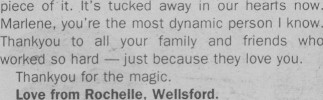 piece of it. It's tucked away in our hearts now.
Marlene, you're the most dynamic person I know.
Thankyou to all your family and friends who
worked so hard — just because they love you.
Thankyou for the magic.
Love from Rochelle, Wellsford.